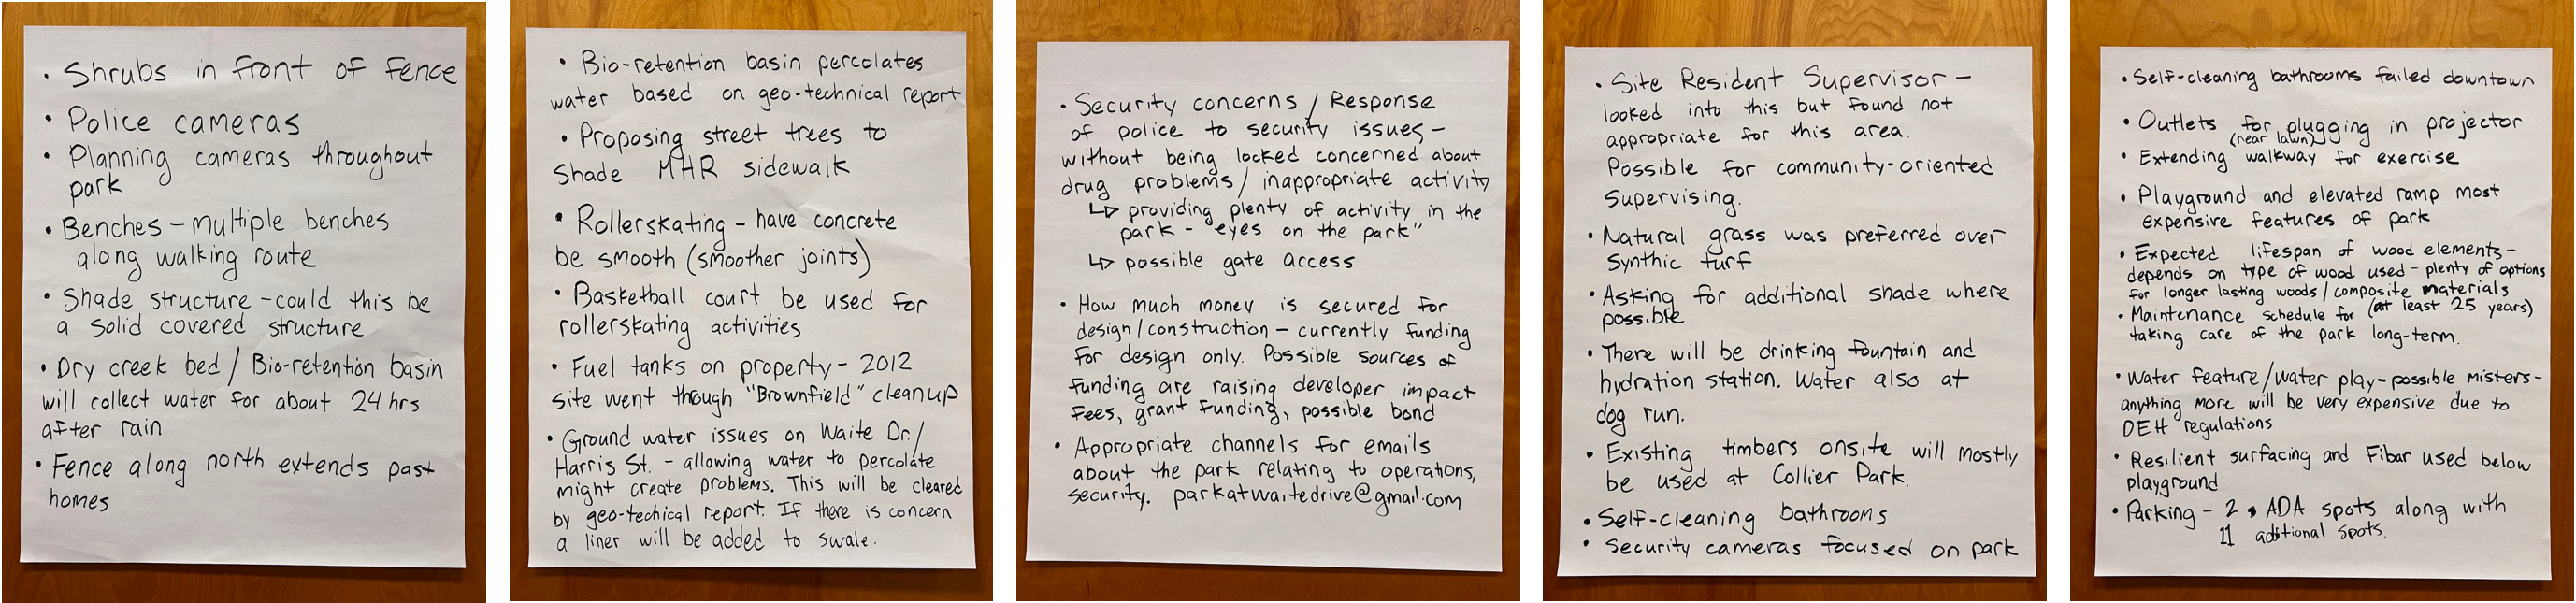 • Shrubs in front of fence
• Police cameras
• Planning cameras throughout
park
• Benches – multiple benches
along walking route
• Shade structure – could this be
a solid covered structure
• Dry creek bed / Bio-retention basin
will collect water for about 24 hrs
after rain
• Fence along north extends past
homes
• Bio-retention basin percolates
water based on geo-technical report
• Proposing street trees to
shade MHR sidewalk
• Rollerskating – have concrete
be smooth (smoother joints)
• Basketball court be used for
rollerskating activities
• Fuel tanks on property – 2012
site went through "Brownfield" cleanup
• Ground water issues on Waite Dr./
Harris St. – allowing water to percolate
might create problems. This will be cleared
by geo-techical report. If there is concern
a liner will be added to swale.
• Security concerns / Response
of police to security issues –
without being locked concerned about
drug problems / inappropriate activity
↳ providing plenty of activity in the
park – "eyes on the park"
↳ possible gate access
• How much money is secured for
design/construction – currently funding
for design only. Possible sources of
funding are raising developer impact
fees, grant funding, possible bond
• Appropriate channels for emails
about the park relating to operations,
security. parkatwaitedrive@gmail.com
• Site Resident Supervisor –
looked into this but found not
appropriate for this area.
Possible for community-oriented
supervising.
• Natural grass was preferred over
Synthic turf
• Asking for additional shade where
possible
• There will be drinking fountain and
hydration station. Water also at
dog run.
• Existing timbers onsite will mostly
be used at Collier Park.
• Self-cleaning bathrooms
• Security cameras focused on park
• Self-cleaning bathrooms failed downtown
• Outlets for plugging in projector
(near lawn)
• Extending walkway for exercise
• Playground and elevated ramp most
expensive features of park
• Expected lifespan of wood elements –
depends on type of wood used – plenty of options
for longer lasting woods / composite materials
(at least 25 years)
• Maintenance schedule for
taking care of the park long-term.
• Water feature/water play – possible misters –
anything more will be very expensive due to
DEH regulations
• Resilient surfacing and Fibar used below
playground
• Parking – 2 ADA spots along with
11 additional spots.